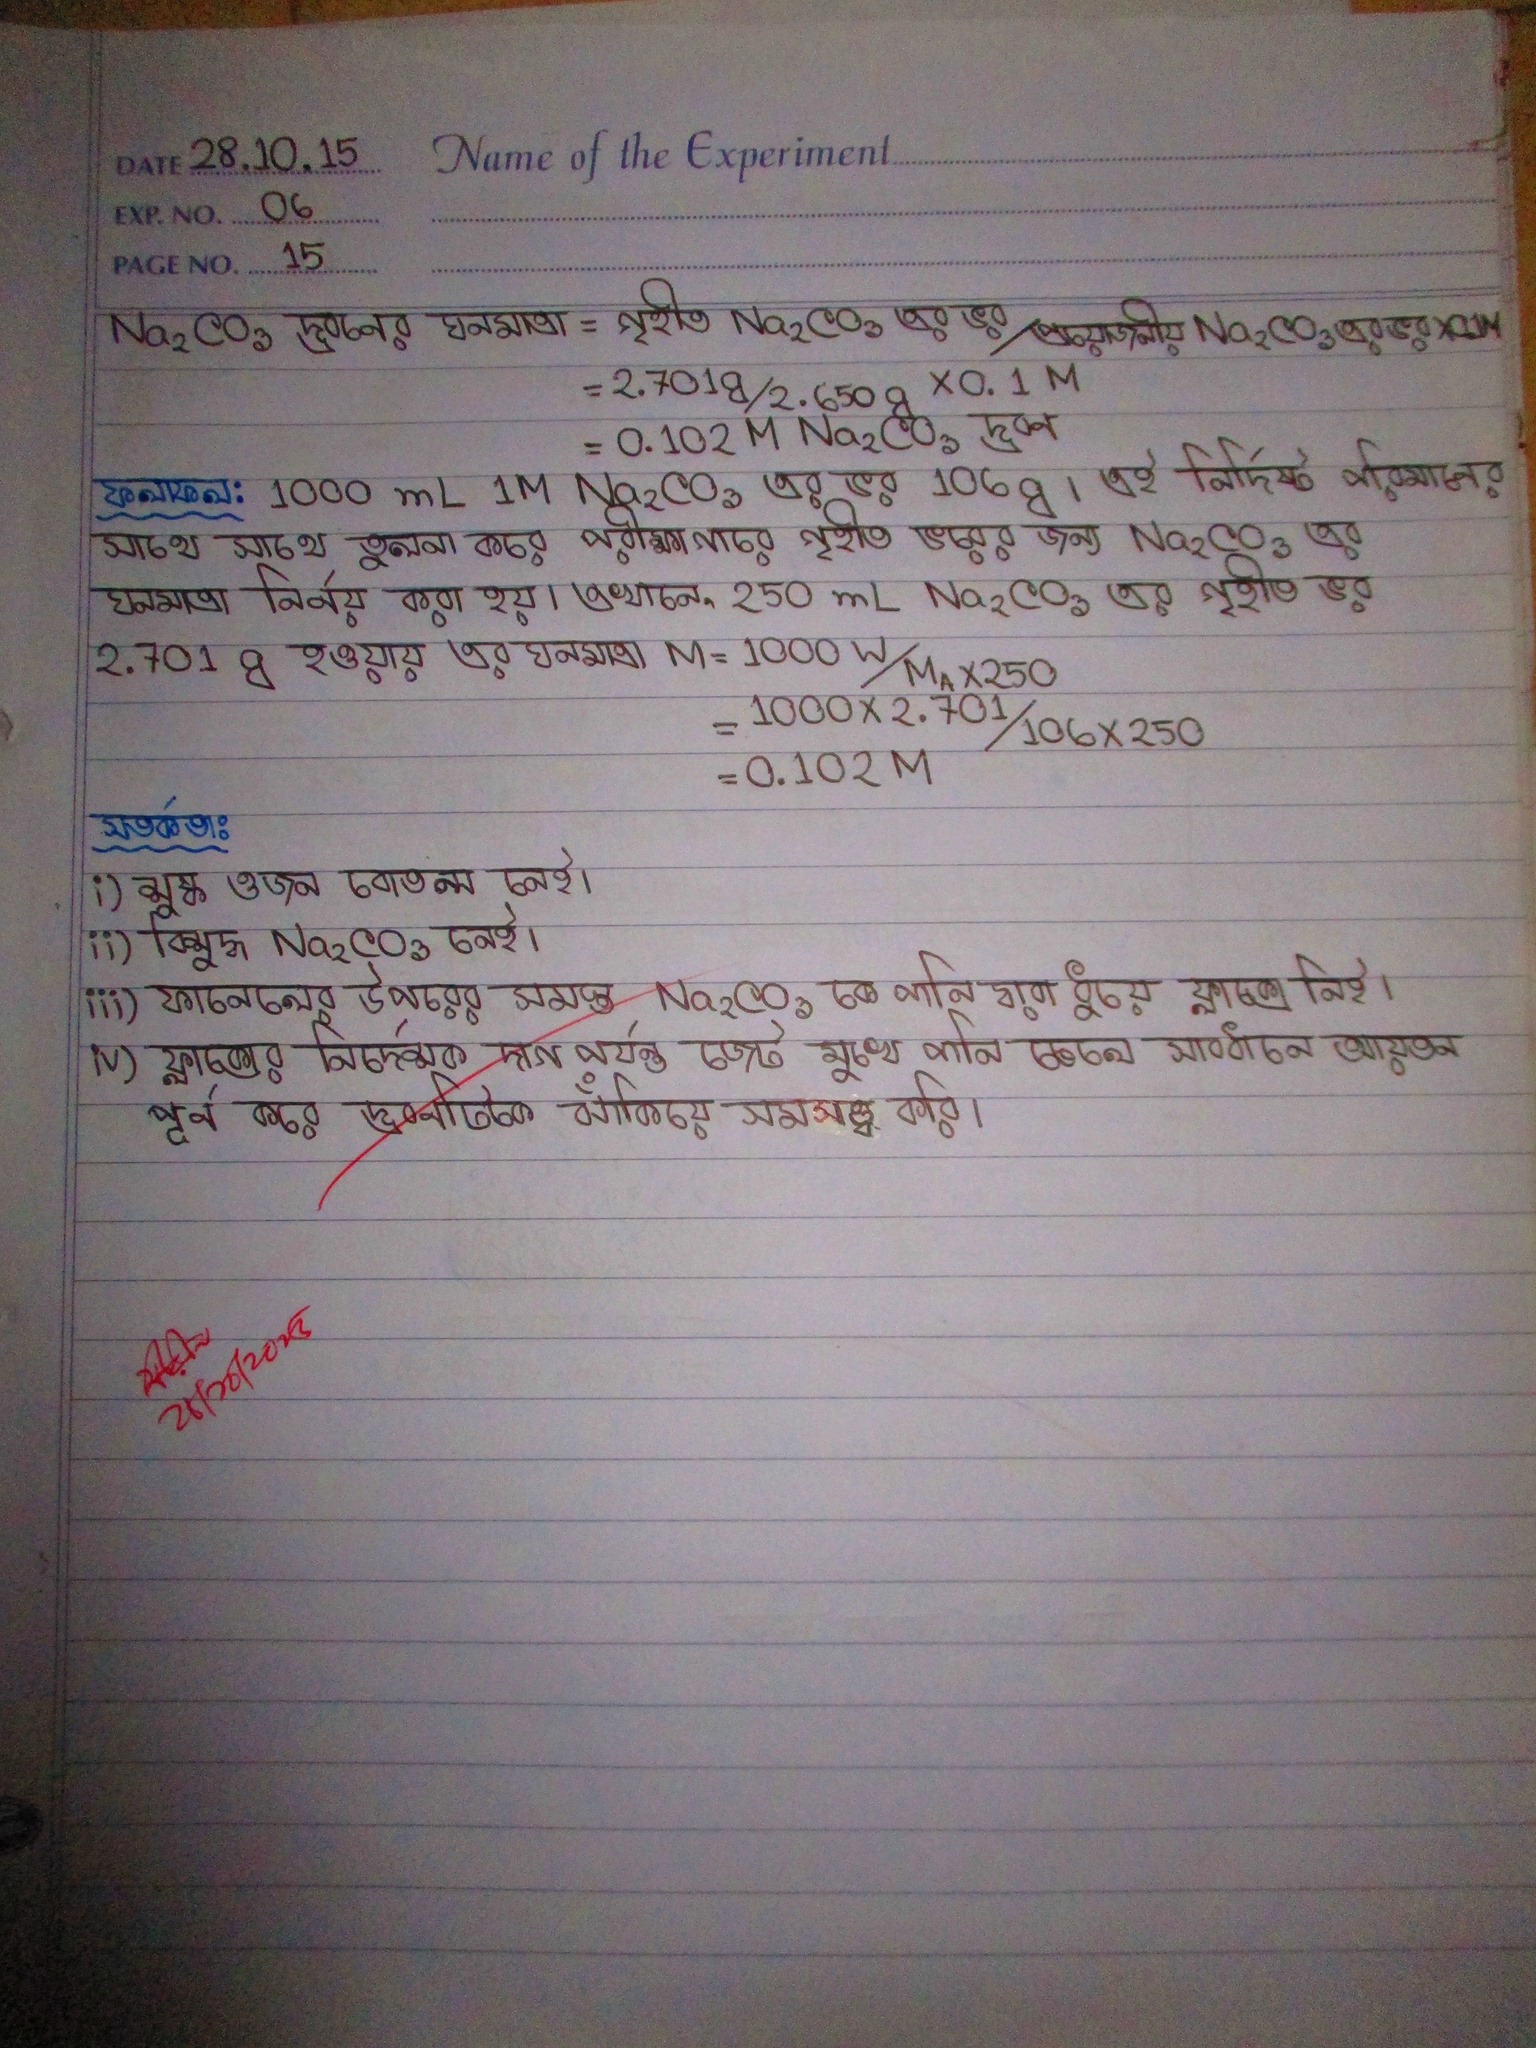 DATE 28.10.15 Name of the Experiment
EXP. NO. 06
PAGE NO. 15
Na₂CO₃ দ্রবনের ঘনমাত্রা = গৃহীত Na₂CO₃ এর ভর/প্রয়োজনীয় Na₂CO₃ এর ভর × 0.1M
= 2.701g/2.650g × 0.1 M
= 0.102 M Na₂CO₃ দ্রবন
ফলাফল: 1000 mL 1M Na₂CO₃ এর ভর 106g। এই নির্দিষ্ট পরিমানের
সাথে সাথে তুলনা করে পরীক্ষাগারে গৃহীত ভরের জন্য Na₂CO₃ এর
ঘনমাত্রা নির্নয় করা হয়। এখানে, 250 mL Na₂CO₃ এর গৃহীত ভর
2.701 g হওয়ায় এর ঘনমাত্রা M = 1000 W/M_A × 250
= 1000 × 2.701/106 × 250
= 0.102 M
সতর্কতা:
i) শুষ্ক ওজন বোতল নেই।
ii) বিশুদ্ধ Na₂CO₃ নেই।
iii) ফানেলের উপরের সমস্ত Na₂CO₃ কে পানি দ্বারা ধুয়ে ফ্লাস্কে নিই।
iv) ফ্লাস্কের নির্দেশক দাগ পর্যন্ত জেট মুখে পানি ঢেলে সাবধানে আয়তন
পূর্ন করে দ্রবনটিকে ঝাঁকিয়ে সমসত্ত্ব করি।
২৮/১০/২০১৫